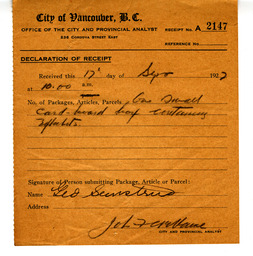 City of Vancouver, B.C.
OFFICE OF THE CITY AND PROVINCIAL ANALYST
RECEIPT No. A 2147
236 CORDOVA STREET EAST
REFERENCE No.
DECLARATION OF RECEIPT
Received this 17 day of Sep 192
at 10.00 a.m.
No. of Packages, Articles, Parcels. One Small
Card-board box containing
Signature of Person submitting Package, Article or Parcel:
Name Geo
Address
CITY AND PROVINCIAL ANALYST